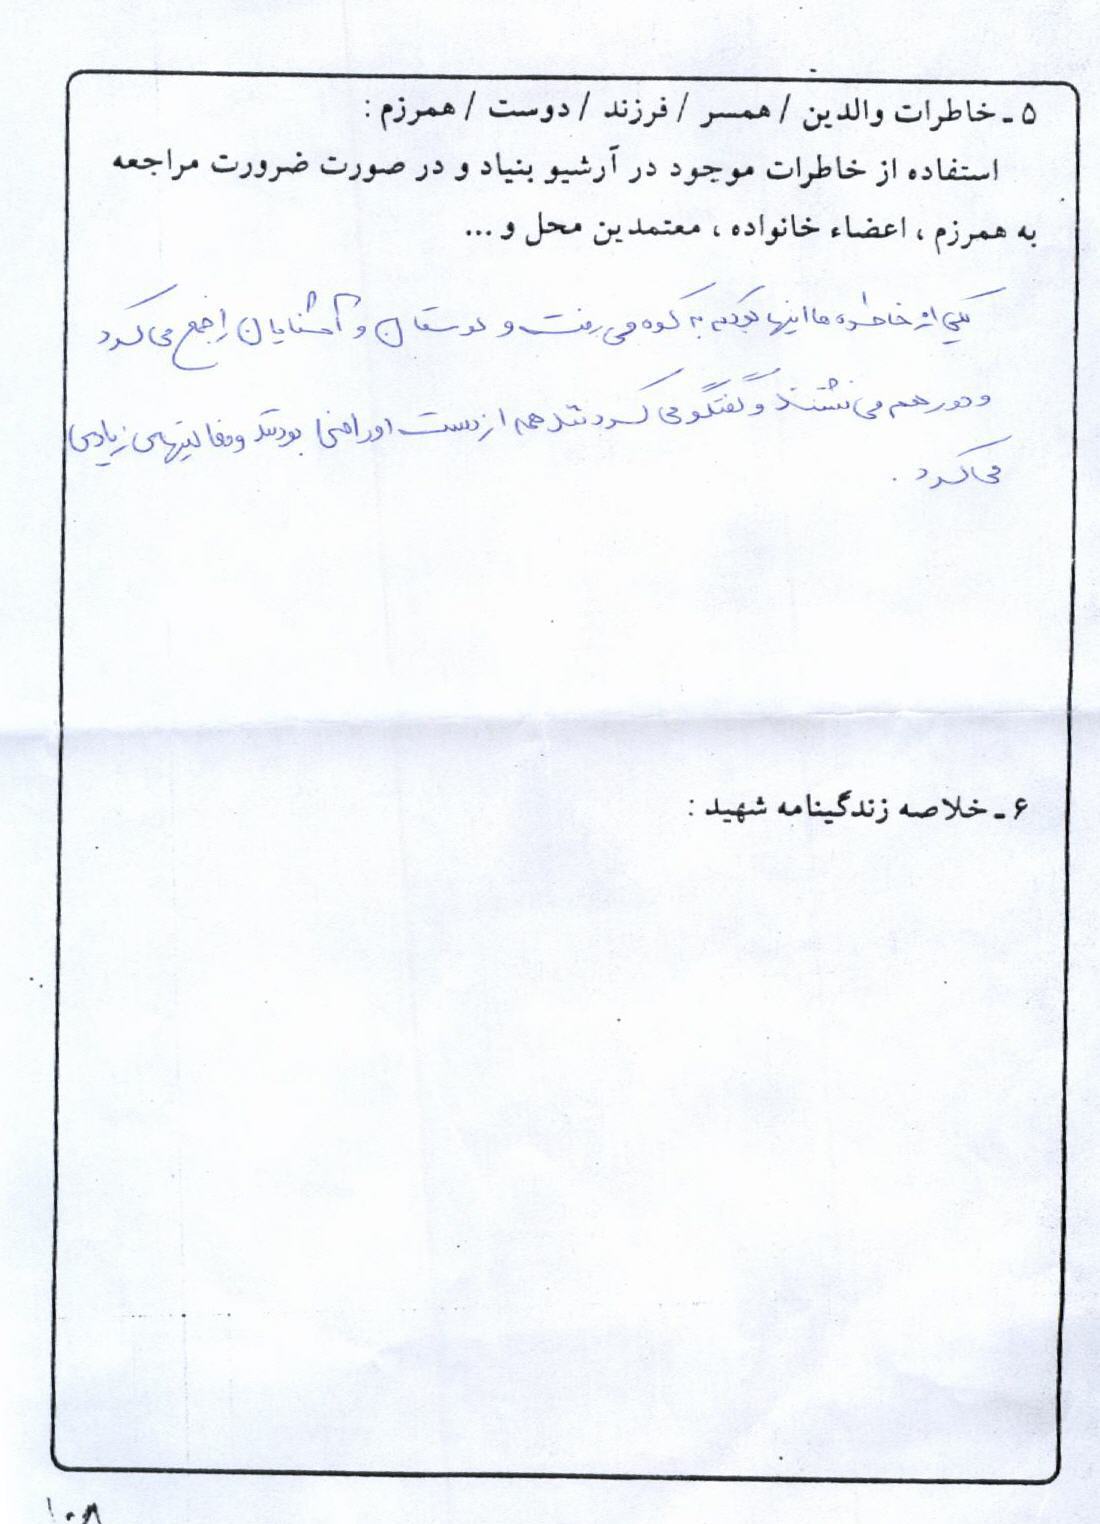 ۵ ـ خاطرات والدین / همسر / فرزند / دوست / همرزم :
استفاده از خاطرات موجود در آرشیو بنیاد و در صورت ضرورت مراجعه
به همرزم ، اعضاء خانواده ، معتمدین محل و ...
یکی از خاطره ها اینها بود که به کوه می رفت و دوستان و آشنایان را جمع می کرد
و دور هم می نشتند و گفتگو می کردند همه از دست او راضی بودند و فعالیتهای زیادی
می کرد .
۶ ـ خلاصه زندگینامه شهید :